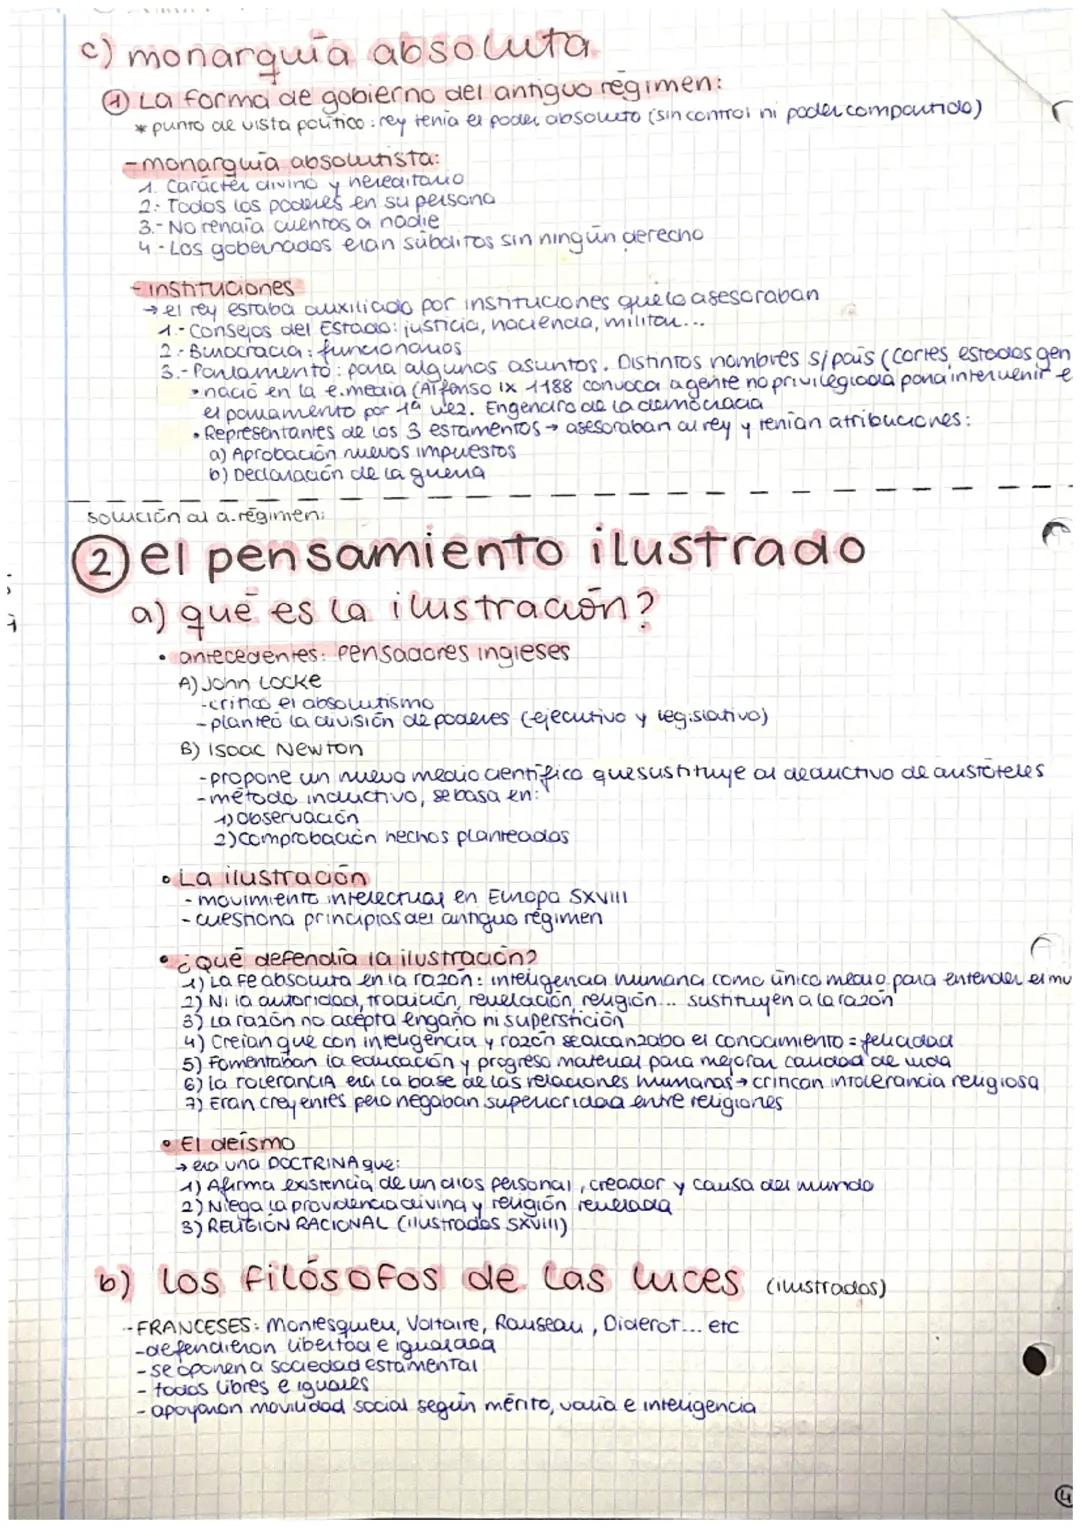 c) monarquía absoluta
① La forma de gobierno del antiguo régimen:
* punto de vista político: rey tenía el poder absoluto (sin control ni poder compartido)
- monarquía absolutista:
1. Carácter divino y hereditario
2.- Todos los poderes en su persona
3.- No rendía cuentas a nadie
4.- Los gobernados eran súbditos sin ningún derecho
- instituciones
→ el rey estaba auxiliado por instituciones que lo asesoraban
1.- Consejos del Estado: justicia, hacienda, militar...
2.- Burocracia: funcionarios
3.- Parlamento: para algunos asuntos. Distintos nombres s/país (Cortes, estados gen
• nació en la e.media (Alfonso IX 1188 convoca a gente no privilegiada para intervenir e
el parlamento por 1ª vez. Engendro de la democracia
• Representantes de los 3 estamentos → asesoraban al rey y tenían atribuciones:
a) Aprobación nuevos impuestos
b) Declaración de la guerra
solución al a.régimen:
② el pensamiento ilustrado
a) qué es la ilustración?
• antecedentes: pensadores ingleses
A) John Locke
- criticó el absolutismo
- planteó la división de poderes (ejecutivo y legislativo)
B) Isaac Newton
- propone un nuevo medio científico que sustituye al deductivo de aristóteles
- método inductivo, se basa en:
1) observación
2) comprobación hechos planteados
• La ilustración
- movimiento intelectual en Europa SXVIII
- cuestiona principios del antiguo régimen
• ¿qué defendía la ilustración?
1) La fe absoluta en la razón: inteligencia humana como único medio para entender el mu
2) Ni la autoridad, tradición, revelación, religión... sustituyen a la razón
3) La razón no acepta engaño ni superstición
4) Creían que con inteligencia y razón se alcanzaba el conocimiento = felicidad
5) Fomentaban la educación y progreso material para mejorar calidad de vida
6) la tolerancia era la base de las relaciones humanas → critican intolerancia religiosa
7) Eran creyentes pero negaban superioridad entre religiones
• El deísmo
→ era una DOCTRINA que:
1) Afirma existencia de un dios personal, creador y causa del mundo
2) Niega la providencia divina y religión revelada
3) RELIGIÓN RACIONAL (ilustrados SXVIII)
b) los filósofos de las luces (ilustrados)
- FRANCESES: Montesquieu, Voltaire, Rouseau, Diderot... etc
- defendieron libertad e igualdad
- se oponen a sociedad estamental
- todos libres e iguales
- apoyaron movilidad social según mérito, valía e inteligencia
④